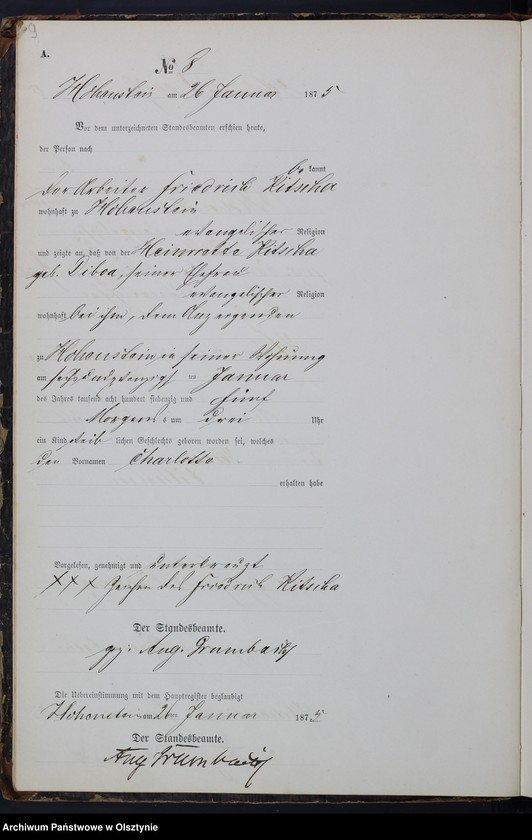 9
A.
№ 8
Hohenstein am 26 Januar 1875
Vor dem unterzeichneten Standesbeamten erschien heute,
der Person nach
be kannt
der Arbeiter Friedrich Kitscha
wohnhaft zu Hohenstein
evangelischer Religion
und zeigte an, daß von der Henriette Kitscha
geb. Diboa, seiner Ehefrau
evangelischer Religion
wohnhaft bei ihm, dem Anzeigenden
zu Hohenstein in seiner Wohnung
am sechsundzwanzigsten Januar
des Jahres tausend acht hundert siebenzig und fünf
Morgens um drei Uhr
ein Kind weiblichen Geschlechts geboren worden sei, welches
den Vornamen Charlotte
erhalten habe
Vorgelesen, genehmigt und unterkreuzt
XXX Zeichen des Friedrich Kitscha
Der Standesbeamte.
gez. Aug. Grumbach
Die Uebereinstimmung mit dem Hauptregister beglaubigt
Hohenstein am 26ten Januar 1875
Der Standesbeamte.
Aug Grumbach
Archiwum Państwowe w Olsztynie